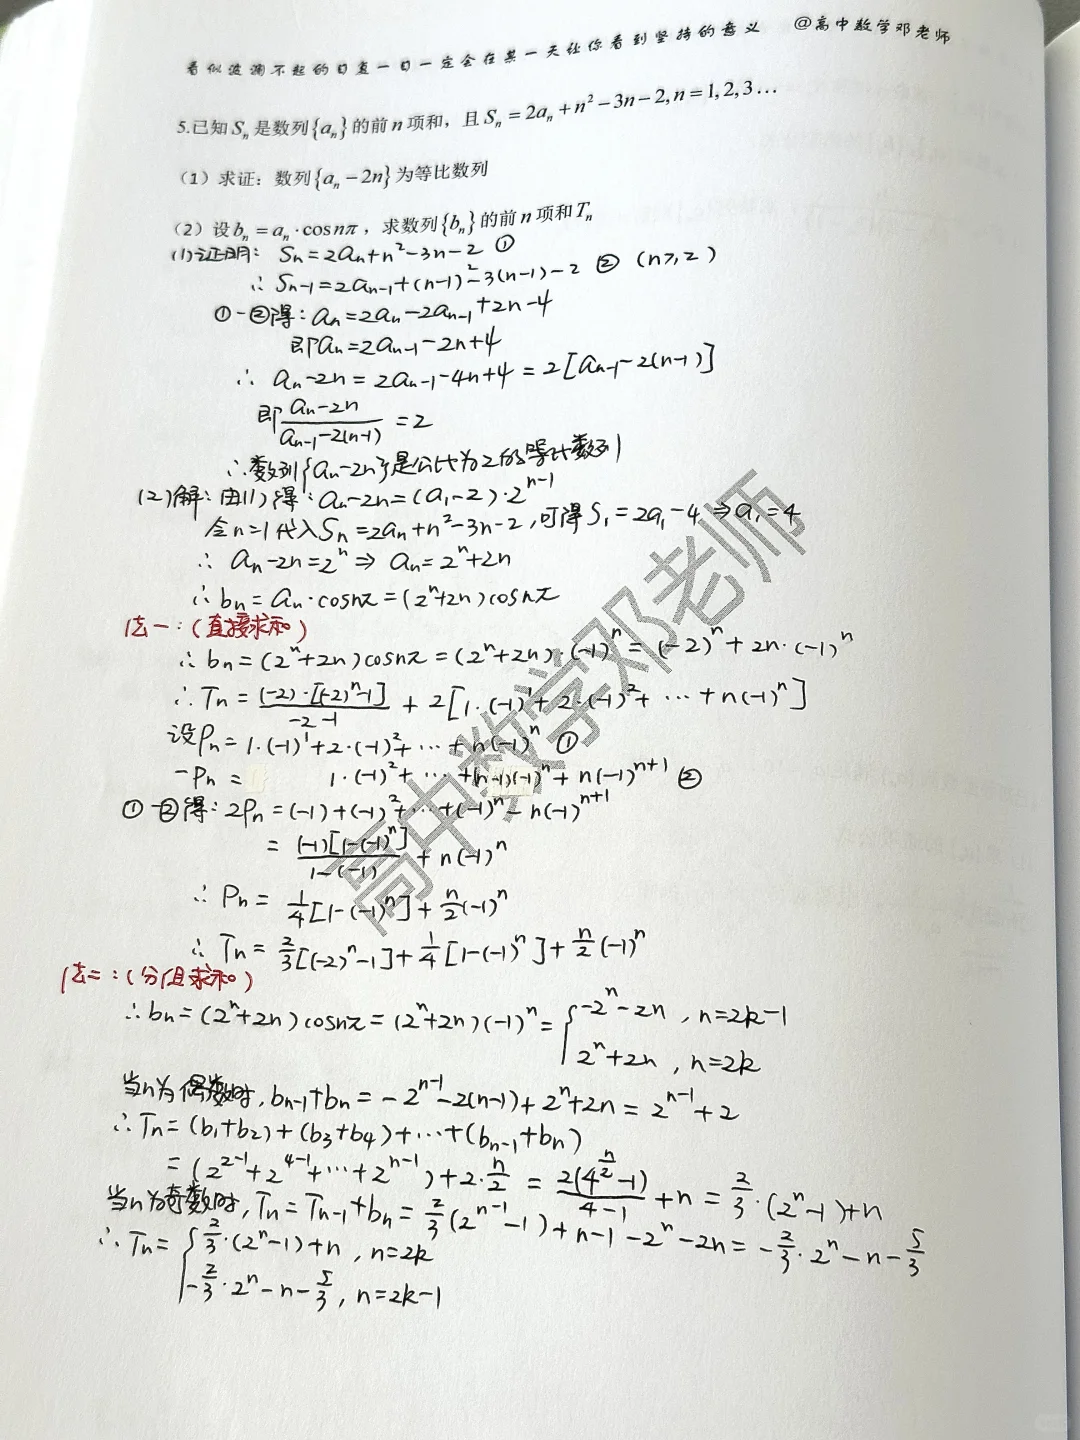 看似波澜不起的日复一日一定会在某一天让你看到坚持的意义 @高中数学邓老师
5.已知Sₙ是数列{aₙ}的前n项和，且Sₙ=2aₙ+n²−3n−2,n=1,2,3…
（1）求证：数列{aₙ−2n}为等比数列
（2）设bₙ=aₙ·cosnπ，求数列{bₙ}的前n项和Tₙ
(1)证明：Sₙ=2aₙ+n²−3n−2 ①
∴Sₙ₋₁=2aₙ₋₁+(n−1)²−3(n−1)−2 ② (n≥2)
①−②得：aₙ=2aₙ−2aₙ₋₁+2n−4
即aₙ=2aₙ₋₁−2n+4
∴ aₙ−2n=2aₙ₋₁−4n+4=2[aₙ₋₁−2(n−1)]
即(aₙ−2n)/(aₙ₋₁−2(n−1))=2
∴数列{aₙ−2n}是公比为2的等比数列
(2)解：由(1)得：aₙ−2n=(a₁−2)·2ⁿ⁻¹
令n=1代入Sₙ=2aₙ+n²−3n−2,可得S₁=2a₁−4⇒a₁=4
∴ aₙ−2n=2ⁿ⇒aₙ=2ⁿ+2n
∴bₙ=aₙ·cosnπ=(2ⁿ+2n)cosnπ
法一：(直接求和)
∴bₙ=(2ⁿ+2n)cosnπ=(2ⁿ+2n)·(−1)ⁿ=(−2)ⁿ+2n·(−1)ⁿ
∴Tₙ=(−2)·[(−2)ⁿ−1]/(−2−1)+2[1·(−1)¹+2·(−1)²+…+n(−1)ⁿ]
设Pₙ=1·(−1)¹+2·(−1)²+…+n(−1)ⁿ ①
−Pₙ= 1·(−1)²+…+(n−1)(−1)ⁿ+n(−1)ⁿ⁺¹ ②
①−②得：2Pₙ=(−1)+(−1)²+…+(−1)ⁿ−n(−1)ⁿ⁺¹
=(−1)[1−(−1)ⁿ]/(1−(−1))+n(−1)ⁿ
∴ Pₙ=1/4[1−(−1)ⁿ]+n/2(−1)ⁿ
∴ Tₙ=2/3[(−2)ⁿ−1]+1/4[1−(−1)ⁿ]+n/2(−1)ⁿ
法二：(分组求和)
∴bₙ=(2ⁿ+2n)cosnπ=(2ⁿ+2n)(−1)ⁿ={−2ⁿ−2n,n=2k−1
2ⁿ+2n,n=2k
当n为偶数时,bₙ₋₁+bₙ=−2ⁿ⁻¹−2(n−1)+2ⁿ+2n=2ⁿ⁻¹+2
∴Tₙ=(b₁+b₂)+(b₃+b₄)+…+(bₙ₋₁+bₙ)
=(2²⁻¹+2⁴⁻¹+…+2ⁿ⁻¹)+2·n/2=2(4^(n/2)−1)/(4−1)+n=2/3·(2ⁿ−1)+n
当n为奇数时,Tₙ=Tₙ₋₁+bₙ=2/3(2ⁿ⁻¹−1)+n−1−2ⁿ−2n=−2/3·2ⁿ−n−5/3
∴Tₙ={2/3·(2ⁿ−1)+n,n=2k
−2/3·2ⁿ−n−5/3,n=2k−1
高中数学邓老师